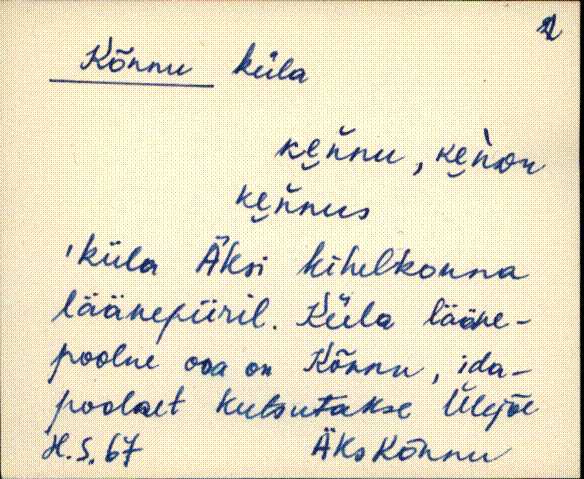 2
Kõnnu küla
ke̮ňnu, ke̮ǹnu
ke̮ňnus
'küla Äksi kihelkonna
läänepiiril. Küla lääne-
poolne osa on Kõnnu, ida-
poolset kutsutakse Ülejõe
H.S. 67 Äks Kõnnu